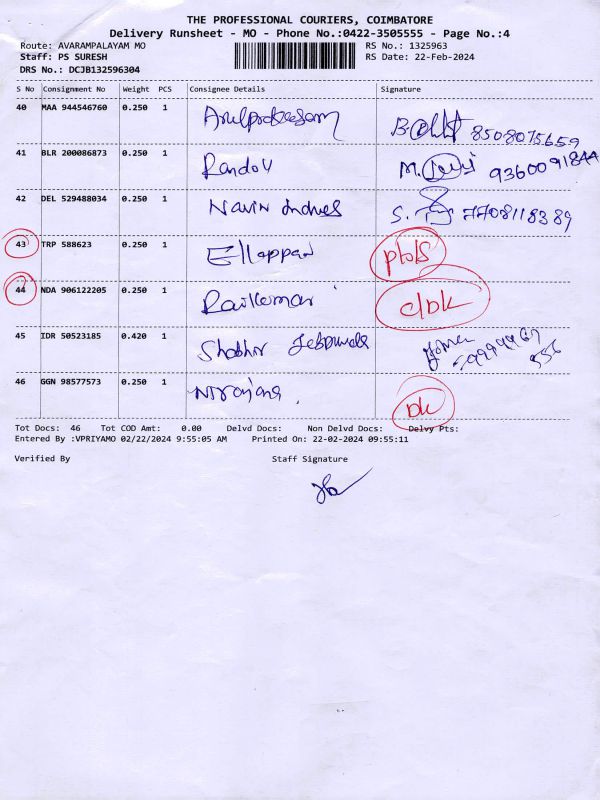 THE PROFESSIONAL COURIERS, COIMBATORE
Delivery Runsheet - MO - Phone No.:0422-3505555 - Page No.:4
Route: AVARAMPALAYAM MO RS No.: 1325963
Staff: PS SURESH RS Date: 22-Feb-2024
DRS No.: DCJB132596304
S No Consignment No Weight PCS Consignee Details Signature
40 MAA 944546760 0.250 1 8508075659
41 BLR 200086873 0.250 1 M. 9360091844
42 DEL 529488034 0.250 1 Navin S. 7708118389
43 TRP 588623 0.250 1 Ellappan
44 NDA 906122205 0.250 1 Rajkumar
45 IDR 50523185 0.420 1
46 GGN 98577573 0.250 1 Niranjana
Tot Docs: 46 Tot COD Amt: 0.00 Delvd Docs: Non Delvd Docs: Delvy Pts:
Entered By :VPRIYAMO 02/22/2024 9:55:05 AM Printed On: 22-02-2024 09:55:11
Verified By Staff Signature